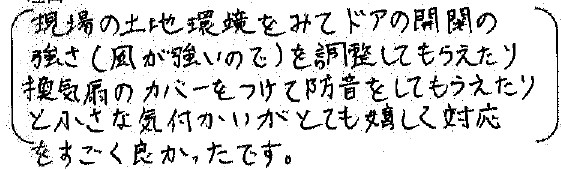 現場の土地環境をみてドアの開閉の
強さ(風が強いので)を調整してもらえたり
換気扇のカバーをつけて防音をしてもらえたり
と小さな気付かいがとても嬉しく対応
をすごく良かったです。